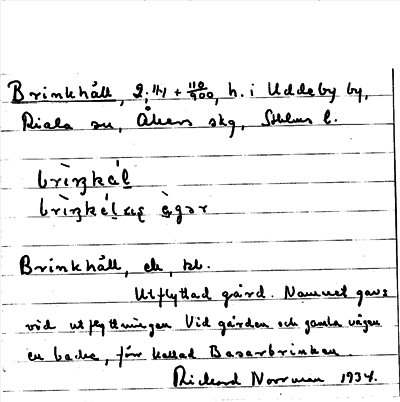 Brinkhåll, 2:11 + 110/900, h. i Uddeby by,
Riala sn, Åkers skg, Sthlms l.
Brinkhåll, ek, kl.
Utflyttad gård. Namnet gavs
vid utflyttningen Vid gården och gamla vägen
en backe, förr kallad Basarbrinken
Rickard Norrman 1934.